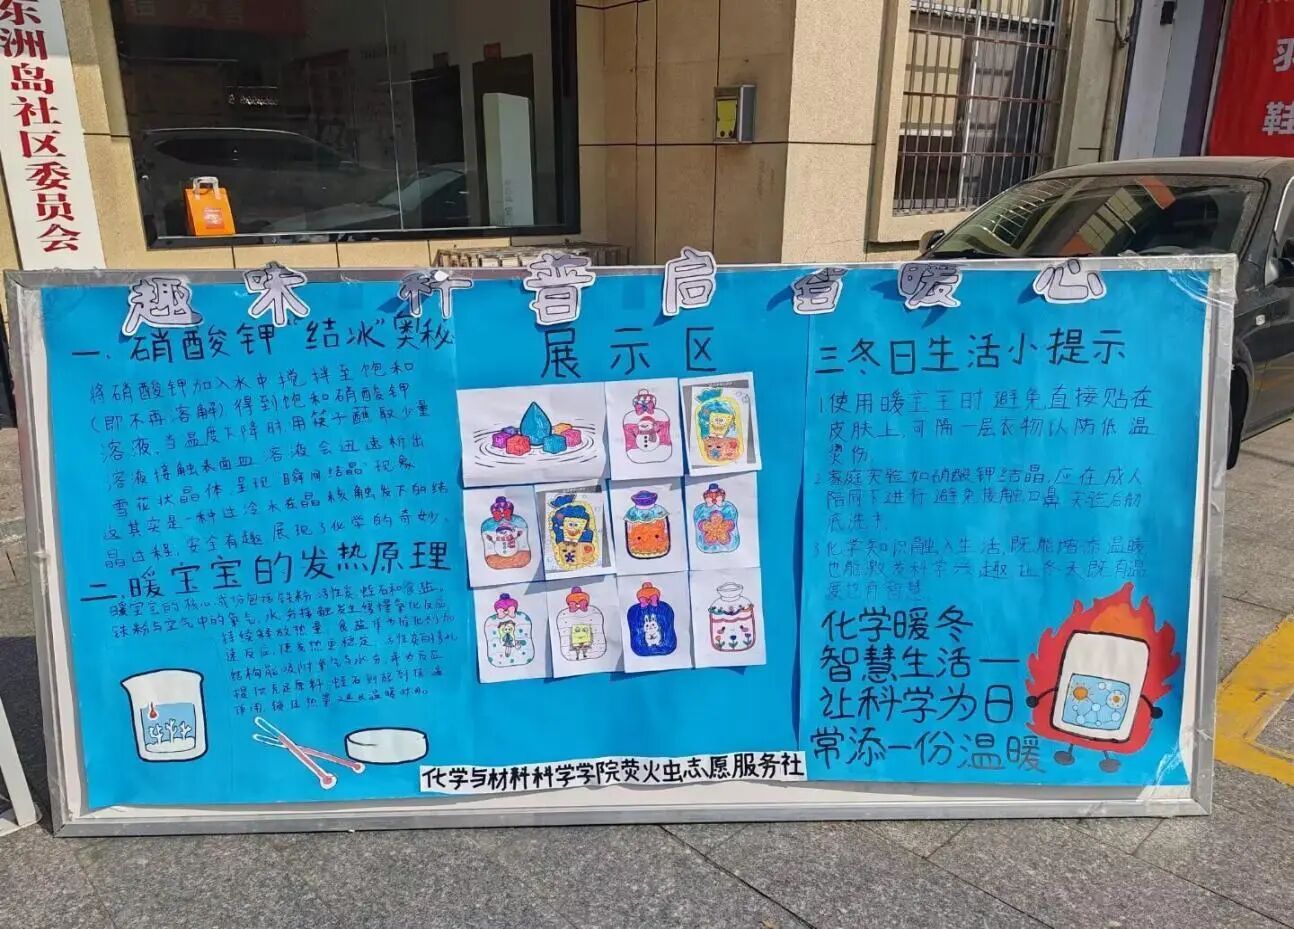 东洲岛社区委员会
趣味科普启智暖心
一、硝酸钾“结冰”奥秘
将硝酸钾加入水中搅拌至饱和
(即不再溶解)得到饱和硝酸钾
溶液,当温度下降时用筷子蘸取少量
溶液接触表面皿,溶液会迅速析出
雪花状晶体,呈现“瞬间结晶”现象
这其实是一种过冷水在晶核触发下的结
晶过程,安全有趣,展现了化学的奇妙。
二、暖宝宝的发热原理
暖宝宝的核心成份包括铁粉、活性炭、蛭石和食盐。
铁粉与空气中的氧气、水分接触发生缓慢氧化反应,
持续释放热量,食盐作为催化剂加
速反应,使发热更稳定,活性炭的多孔
结构能吸附氧气与水分,为反应
提供充足原料,蛭石则起到保温
作用,锁住热量延长温暖时间。
展示区
三冬日生活小提示
1.使用暖宝宝时避免直接贴在
皮肤上,可隔一层衣物以防低温
烫伤。
2.家庭实验如硝酸钾结晶,应在成人
陪同下进行避免接触口鼻,实验后彻
底洗手
3.化学知识融入生活,既能增添温暖
也能激发科学兴趣,让冬天既有温
度也有智慧
化学暖冬
智慧生活一
让科学为日
常添一份温暖
化学与材料科学学院荧火虫志愿服务社
鞋